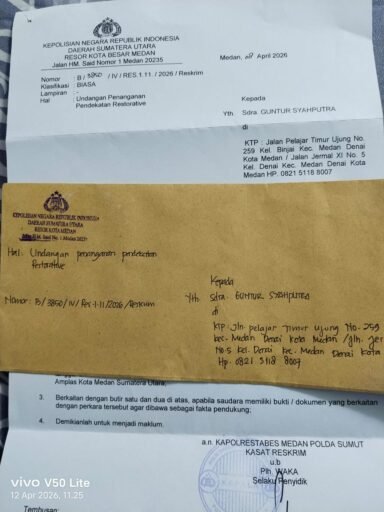 KEPOLISIAN NEGARA REPUBLIK INDONESIA
DAERAH SUMATERA UTARA
RESOR KOTA BESAR MEDAN
Jalan HM. Said Nomor 1 Medan 20235
Medan, April 2026
Nomor : B / 3850 / IV / RES.1.11. / 2026 / Reskrim
Klasifikasi : BIASA
Lampiran : -
Hal : Undangan Penanganan
Pendekatan Restorative
Kepada
Yth. Sdra. GUNTUR SYAHPUTRA
di
KTP : Jalan Pelajar Timur Ujung No.
259 Kel. Binjai Kec. Medan Denai
Kota Medan / Jalan Jermal XI No. 5
Kel. Denai Kec. Medan Denai Kota
Medan HP. 0821 5118 8007
KEPOLISIAN NEGARA REPUBLIK INDONESIA
DAERAH SUMATERA UTARA
RESOR KOTA MEDAN
Jalan H.M. Said No. 1 Medan 20235
Hal : Undangan penanganan pendekatan
Restorative
Nomor : B/3850/IV/Res.1.11/2026/Reskrim
Kepada
Yth Sdra. GUNTUR SYAHPUTRA
di
KTP. Jln pelajar Timur Ujung No. 259
kec. Medan Denai kota Medan /Jln. Jer
No 5 kel. Denai kec. Medan Denai Kota
Hp. 0821 5118 8007
Amplas Kota Medan Sumatera Utara;
3. Berkaitan dengan butir satu dan dua di atas, apabila saudara memiliki bukti / dokumen yang berkaitan
dengan perkara tersebut agar dibawa sebagai fakta pendukung;
4. Demikianlah untuk menjadi maklum.
a.n. KAPOLRESTABES MEDAN POLDA SUMUT
KASAT RESKRIM
u.b
Plh. WAKA
Selaku Penyidik
Tembusan:
vivo V50 Lite
12 Apr 2026, 11.25